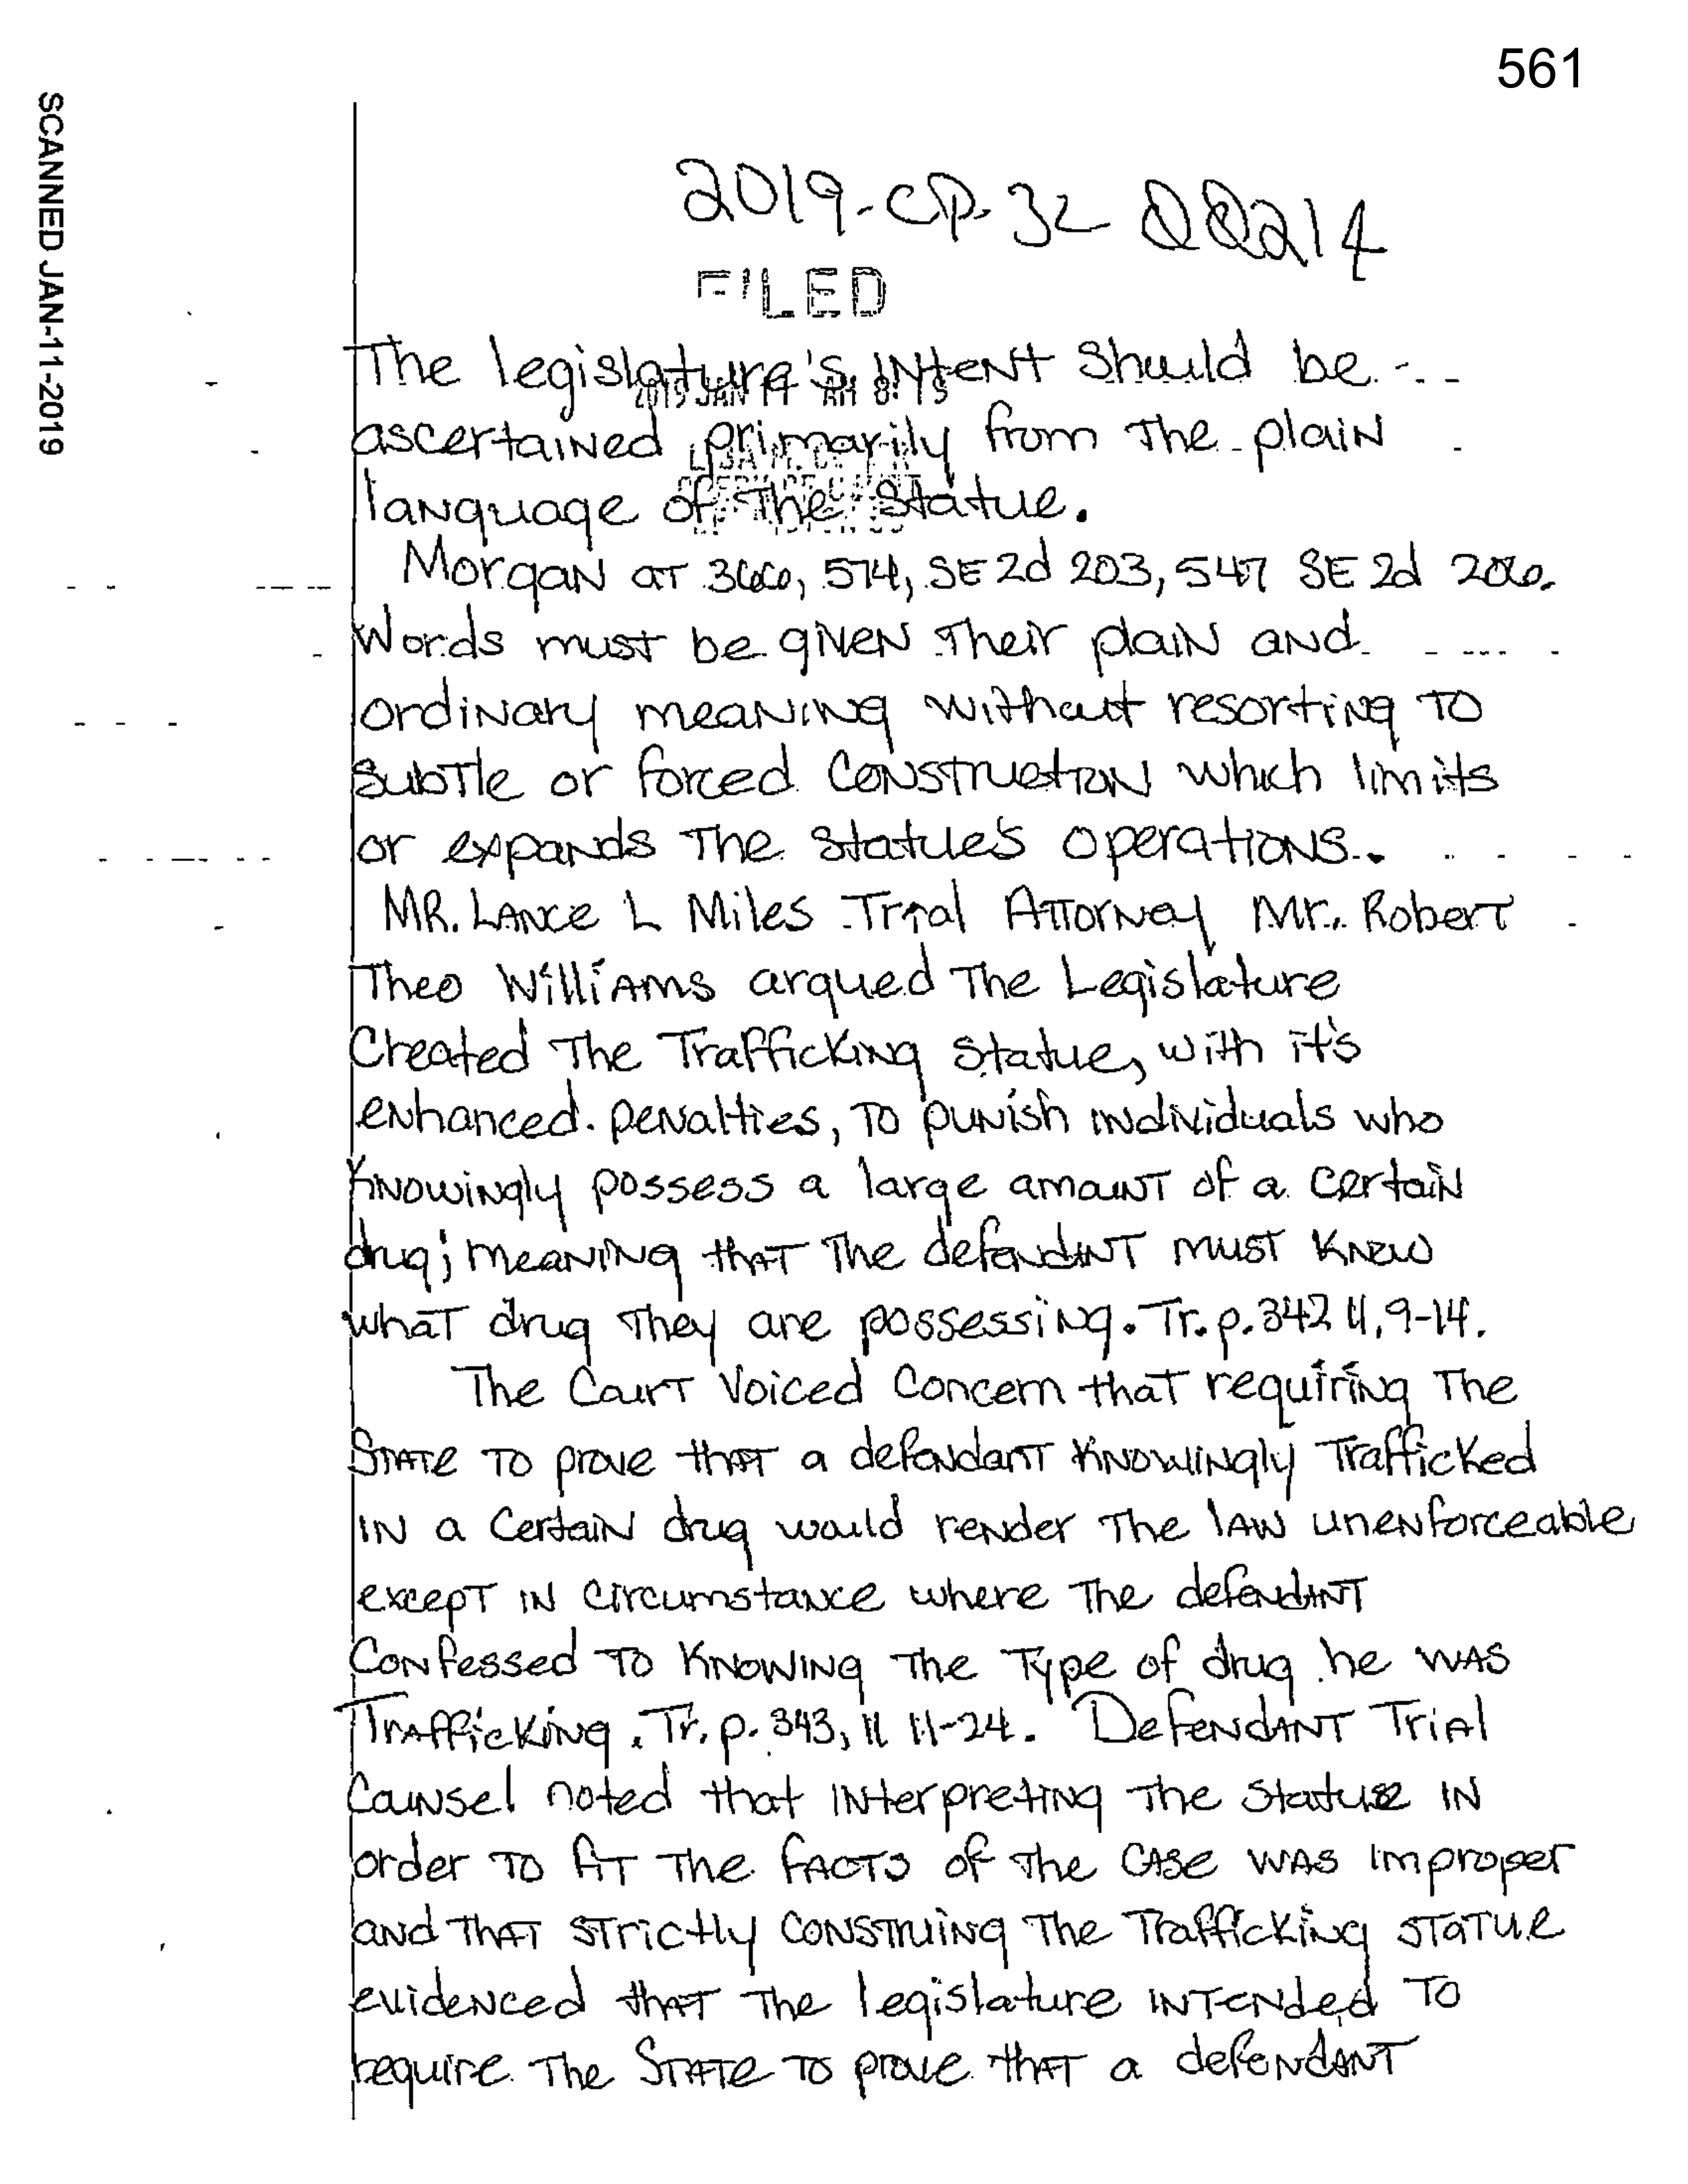 561
SCANNED JAN-11-2019
2019-CP-32 00214
FILED
The legislature's INTENT Should be
2019 JAN 11 AM 8:
ascertained primarily from The plain
language of The Statue.
Morgan at 366, 574, SE 2d 203, 547 SE 2d 206.
Words must be given Their plain and
ordinary meaning without resorting To
Subtle or forced Construction which limits
or expands The Statue's operations.
MR. Lance L Miles Trial Attorney Mr. Robert
Theo Williams argued The Legislature
Created The Trafficking Statue, with it's
enhanced penalties, To punish individuals who
Knowingly possess a large amount of a certain
drug; meaning that The defendant must Know
what drug They are possessing. Tr. p. 342 ll, 9-14.
The Court Voiced Concern that requiring The
State To prove that a defendant Knowingly Trafficked
in a Certain drug would render The law unenforceable
except in Circumstance where The defendant
Confessed To Knowing The Type of drug he was
Trafficking. Tr. p. 343, ll 11-24. Defendant Trial
Counsel noted that interpreting The Statue in
order To fit The facts of The Case was improper
and That strictly Construing The Trafficking Statue
evidenced that The legislature intended To
require The State To prove that a defendant